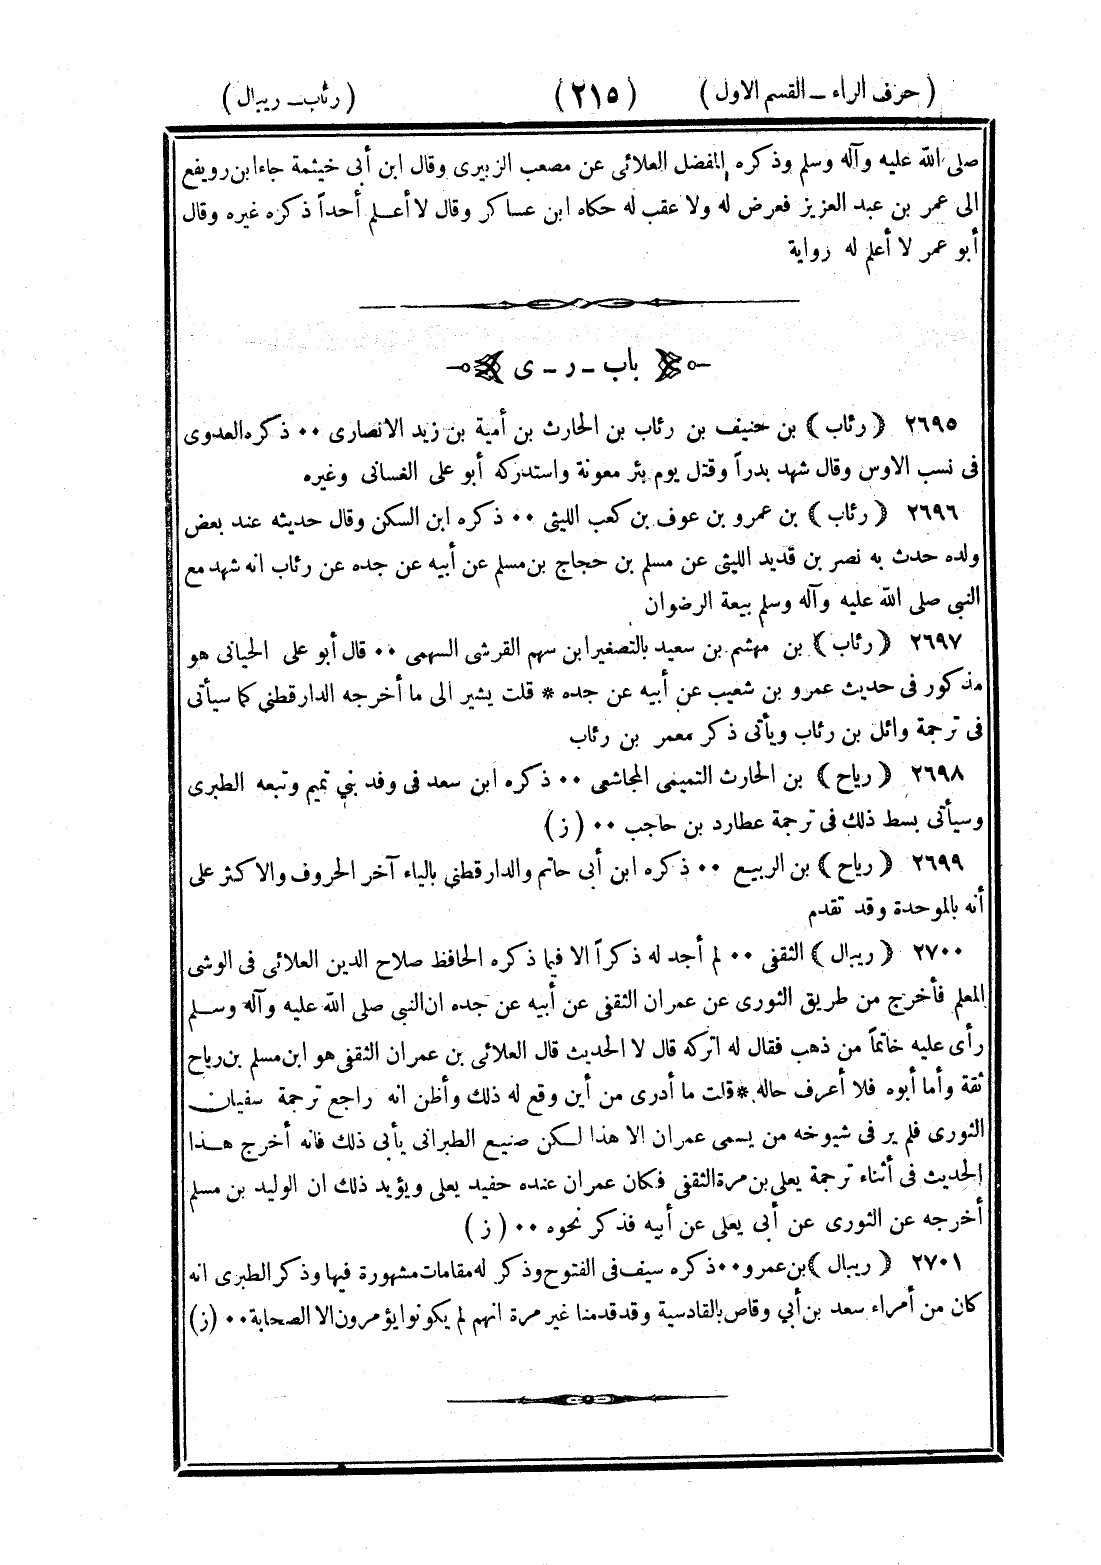 ( حرف الراء – القسم الاول )
( ٢١٥ )
( رئاب – ريبال )
صلى الله عليه وآله وسلم وذكره المفضل العلائى عن مصعب الزبيرى وقال ابن أبى خيثمة جاء ابن رويفع
الى عمر بن عبد العزيز فعرض له ولا عقب له حكاه ابن عساكر وقال لا أعلم أحداً ذكره غيره وقال
أبو عمر لا أعلم له رواية
باب - ر - ى
٢٦٩٥ ﴿ رئاب ﴾ بن حنيف بن رئاب بن الحارث بن أمية بن زيد الانصارى ٠٠ ذكره العدوى
فى نسب الاوس وقال شهد بدراً وقتل يوم بئر معونة واستدركه أبو على الغسانى وغيره
٢٦٩٦ ﴿ رئاب ﴾ بن عمرو بن عوف بن كعب الليثى ٠٠ ذكره ابن السكن وقال حديثه عند بعض
ولده حدث به نصر بن قديد الليثى عن مسلم بن حجاج بن مسلم عن أبيه عن جده عن رئاب انه شهد مع
النبي صلى الله عليه وآله وسلم بيعة الرضوان
٢٦٩٧ ﴿ رئاب ﴾ بن مهشم بن سعيد بالتصغير ابن سهم القرشى السهمى ٠٠ قال أبو على الجيانى هو
مذكور فى حديث عمرو بن شعيب عن أبيه عن جده * قلت يشير الى ما أخرجه الدارقطني كما سيأتى
فى ترجمة وائل بن رئاب ويأتى ذكر معمر بن رئاب
٢٦٩٨ ﴿ رياح ﴾ بن الحارث التميمى المجاشعى ٠٠ ذكره ابن سعد فى وفد بني تميم وتبعه الطبرى
وسيأتى بسط ذلك فى ترجمة عطارد بن حاجب ٠٠ ( ز )
٢٦٩٩ ﴿ رياح ﴾ بن الربيع ٠٠ ذكره ابن أبى حاتم والدارقطني بالياء آخر الحروف والاكثر على
أنه بالموحدة وقد تقدم
٢٧٠٠ ﴿ ريبال ﴾ الثقفى ٠٠ لم أجد له ذكراً الا فيما ذكره الحافظ صلاح الدين العلائى فى الوشى
المعلم فأخرج من طريق الثورى عن عمران الثقفى عن أبيه عن جده ان النبي صلى الله عليه وآله وسلم
رأى عليه خاتماً من ذهب فقال له اتركه قال لا الحديث قال العلائى بن عمران الثقفى هو ابن مسلم بن رياح
ثقة وأما أبوه فلا أعرف حاله * قلت ما أدرى من أين وقع له ذلك وأظن انه راجع ترجمة سفيان
الثورى فلم ير فى شيوخه من يسمى عمران الا هذا لكن صنيع الطبرانى يأبى ذلك فانه أخرج هذا
الحديث فى أثناء ترجمة يعلى بن مرة الثقفى فكان عمران عنده حفيد يعلى ويؤيد ذلك ان الوليد بن مسلم
أخرجه عن الثورى عن أبى يعلى عن أبيه فذكر نحوه ٠٠ ( ز )
٢٧٠١ ﴿ ريبال ﴾ بن عمرو ٠٠ ذكره سيف فى الفتوح وذكر له مقامات مشهورة فيها وذكر الطبرى انه
كان من أمراء سعد بن أبي وقاص بالقادسية وقد قدمنا غير مرة انهم لم يكونوا يؤمرون الا الصحابة ٠٠ ( ز )